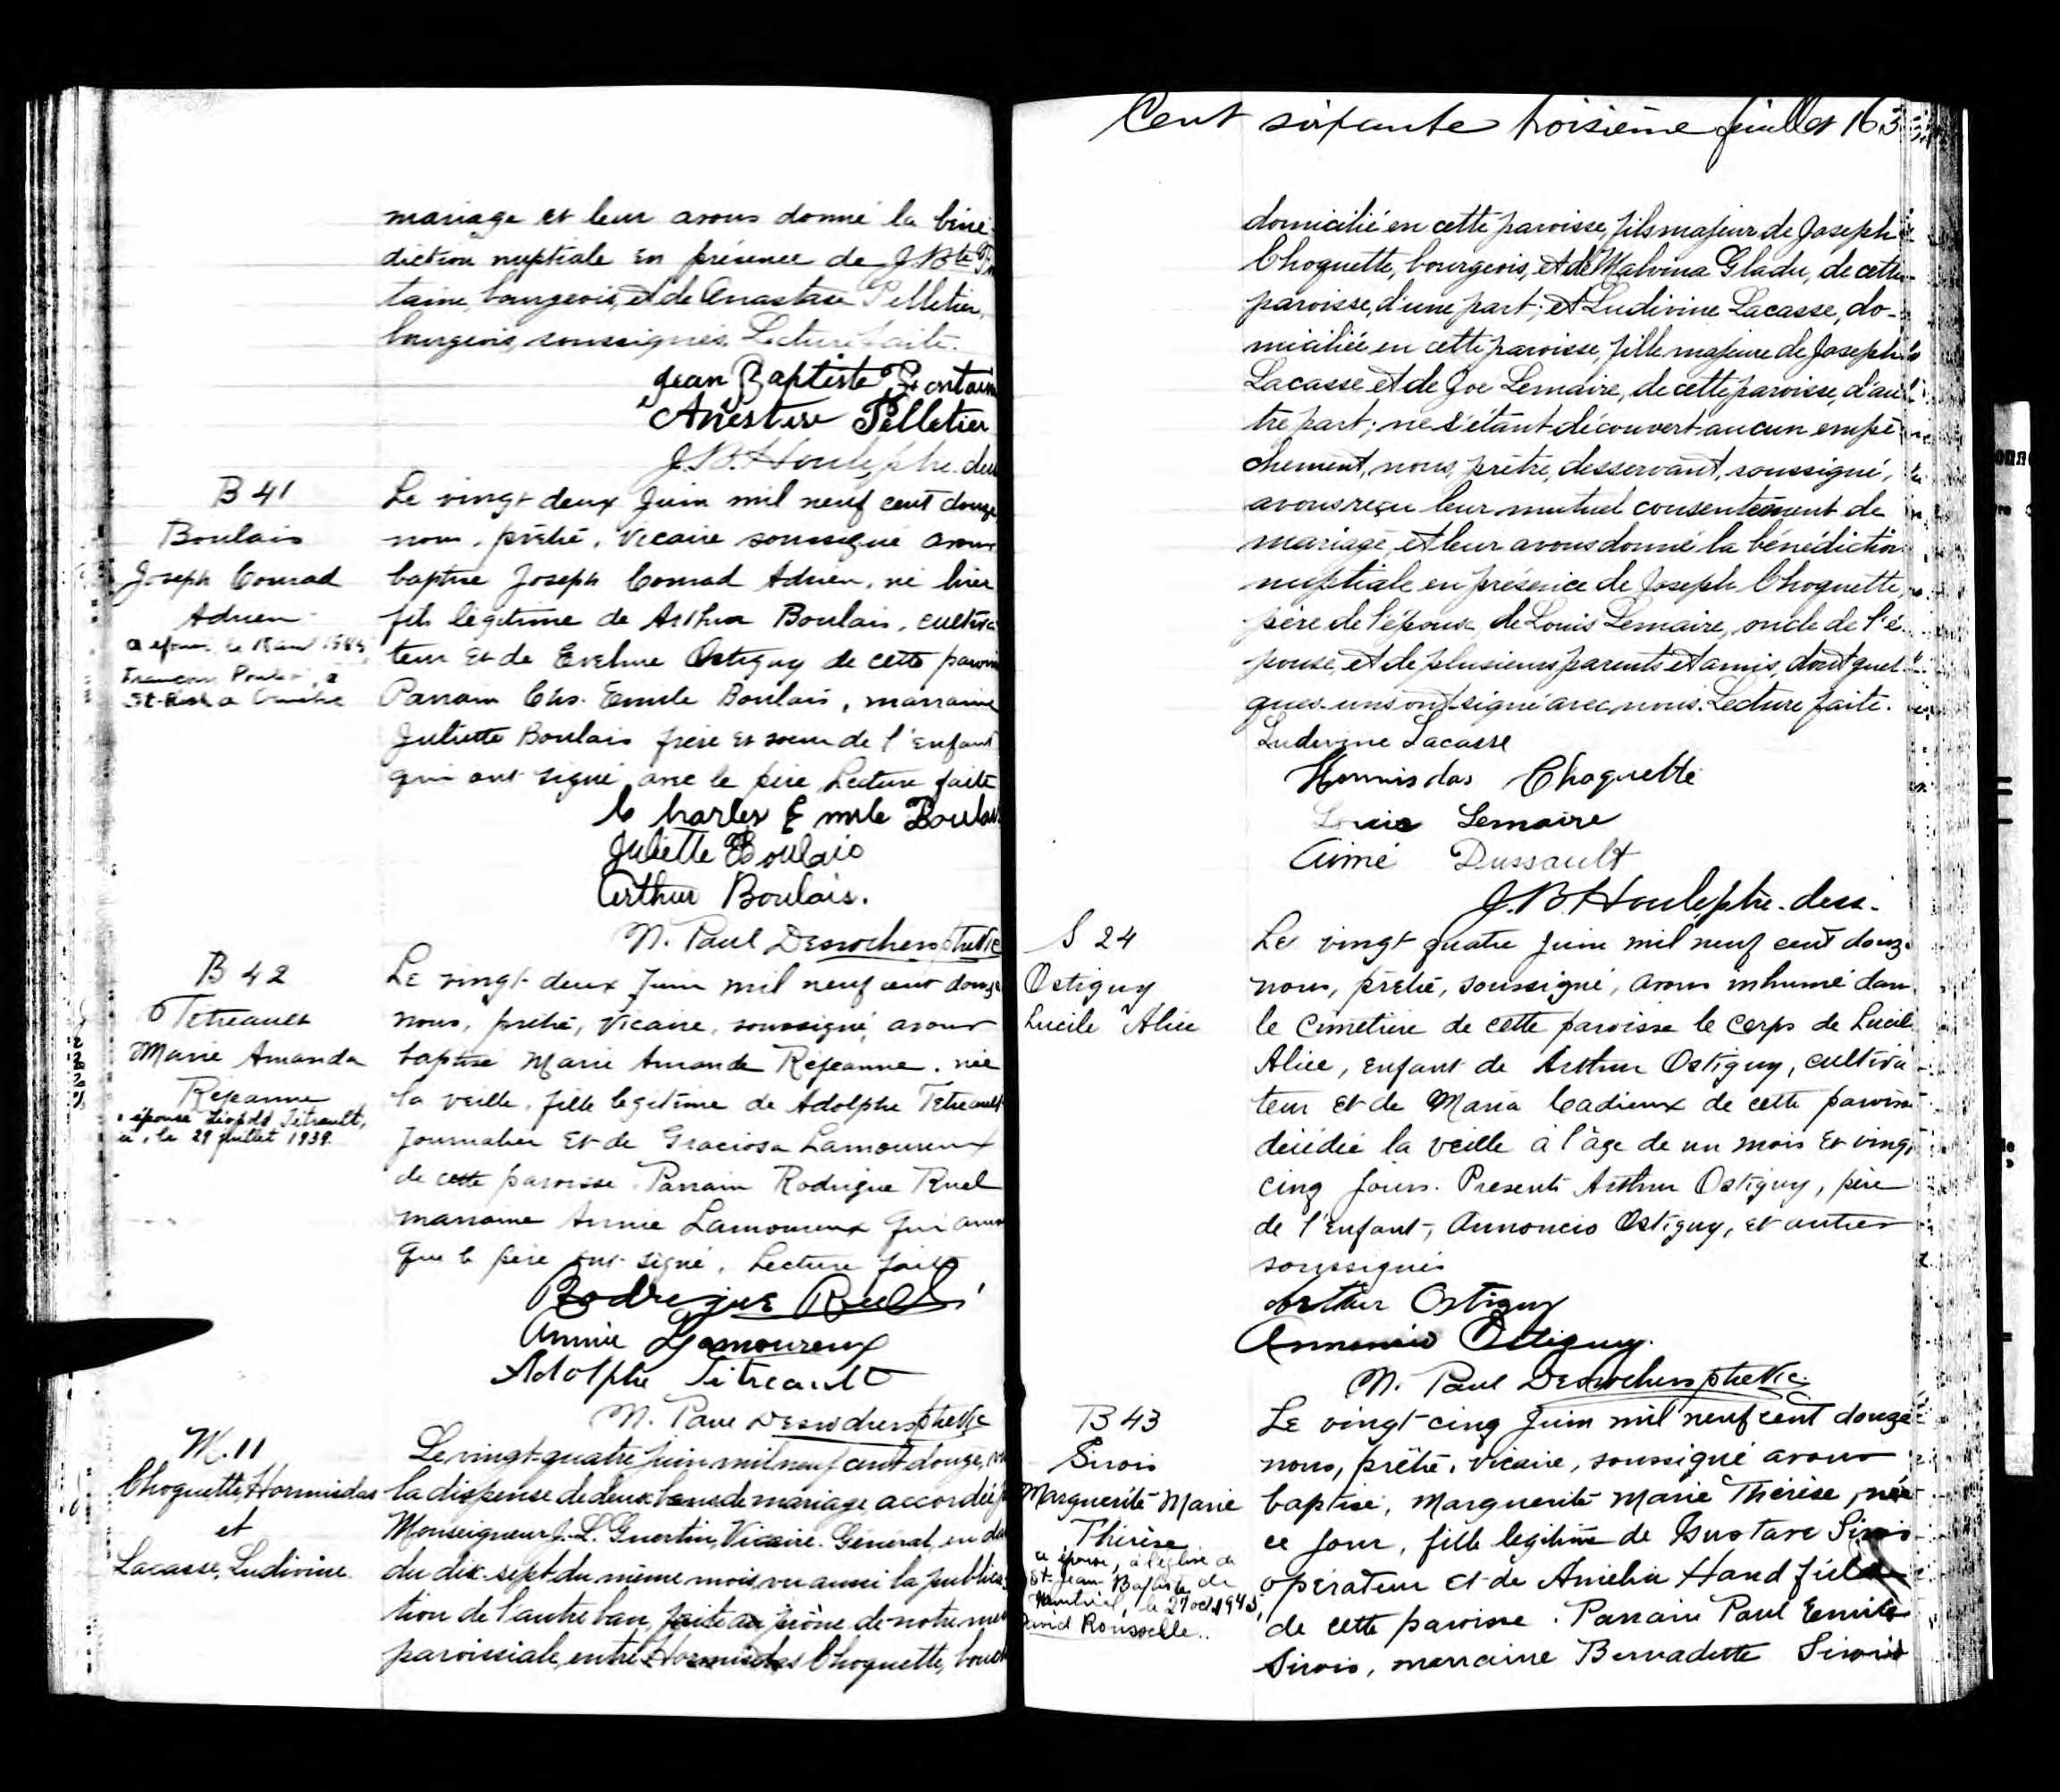 mariage et leur avons donné la béné-
diction nuptiale en présence de J.Bte
taine, bourgeois, et de Anastase Pelletier,
bourgeois, soussignés. Lecture faite.
Jean Baptiste Fontain
Anestase Pelletier
J.B. Houle, ptre. des
B 41
Boulais
Joseph Conrad
Adrien
a épousé le 18
St-
Le vingt deux Juin mil neuf cent douze
nous, prêtre, Vicaire soussigné avons
baptisé Joseph Conrad Adrien, né hier
fils légitime de Arthur Boulais, cultiva
teur et de Eveline Ostiguy de cette parois
Parrain Chs. Emile Boulais, marraine
Juliette Boulais frère et soeur de l'enfant
qui ont signé avec le père Lecture faite
Charles Emile Boulais
Juliette Boulais
Arthur Boulais.
N. Paul Desrochers ptre Vic
B 42
Tétreault
Marie Amanda
Rejeanne
épouse Léopold Tétrault,
le 29 juillet 1939.
Le vingt-deux Juin mil neuf cent douze
nous, prêtre, Vicaire, soussigné, avons
baptisé Marie Amanda Rejeanne, née
la veille, fille légitime de Adolphe Tétreault
Journalier et de Graciosa Lamoureux
de cette paroisse. Parrain Rodrigue Ruel
marraine Annie Lamoureux qui ainsi
que le père ont signé. Lecture faite
Rodrigue Ruel
Annie Lamoureux
Adolphe Tétreault
N. Paul Desrochers ptre Vic
M. 11
Choquette, Hormisdas
et
Lacasse, Ludivine.
Le vingt-quatre juin mil neuf cent douze, vu
la dispense de deux bans de mariage, accordée
Monseigneur J.-L. Guertin, Vicaire-Général, en da
du dix-sept du même mois, vu aussi la publica-
tion de l'autre ban, faite au prône de notre mes
paroissiale, entre Hormisdas Choquette, bouch
Cent soixante troisième feuillet 163
domicilié en cette paroisse, fils majeur de Joseph
Choquette, bourgeois, et de Malvina Gladu, de cette
paroisse, d'une part; et Ludivine Lacasse, do-
miciliée en cette paroisse, fille majeure de Joseph
Lacasse et de Zoe Lemaire, de cette paroisse, d'au
tre part; ne s'étant découvert aucun empê
chement, nous, prêtre, desservant, soussigné,
avons reçu leur mutuel consentement de
mariage, et leur avons donné la bénédiction
nuptiale en présence de Joseph Choquette,
père de l'époux, de Louis Lemaire, oncle de l'é-
pouse, et de plusieurs parents et amis, dont quel-
ques-uns ont signé avec nous. Lecture faite.
Ludivine Lacasse
Hormisdas Choquette
Louis Lemaire
Aimé Dussault
J.B. Houle, ptre. dess.
S 24
Ostiguy
Lucile Alice
Le vingt-quatre Juin mil neuf cent douze
nous, prêtre, soussigné, avons inhumé dans
le cimetière de cette paroisse le corps de Lucile
Alice, enfant de Arthur Ostiguy, cultiva
teur et de Maria Cadieux de cette paroisse
décédée la veille à l'âge de un mois et vingt
cinq jours. Présents Arthur Ostiguy, père
de l'enfant, Annoncio Ostiguy, et autres
soussignés
Arthur Ostiguy
Annoncio Ostiguy.
N. Paul Desrochers ptre Vic.
B 43
Sirois
Marguerite Marie
Thérèse
a épousé, à l'église de
St-Jean-Baptiste de
Montréal, le 27 oct. 1945,
David Rousselle..
Le vingt-cinq Juin mil neuf cent douze
nous, prêtre, vicaire, soussigné avons
baptisé, Marguerite Marie Thérèse, née
ce jour, fille légitime de Gustave Sirois
opérateur et de Amélia Handfield
de cette paroisse. Parrain Paul Emile
Sirois, marraine Bernadette Sirois